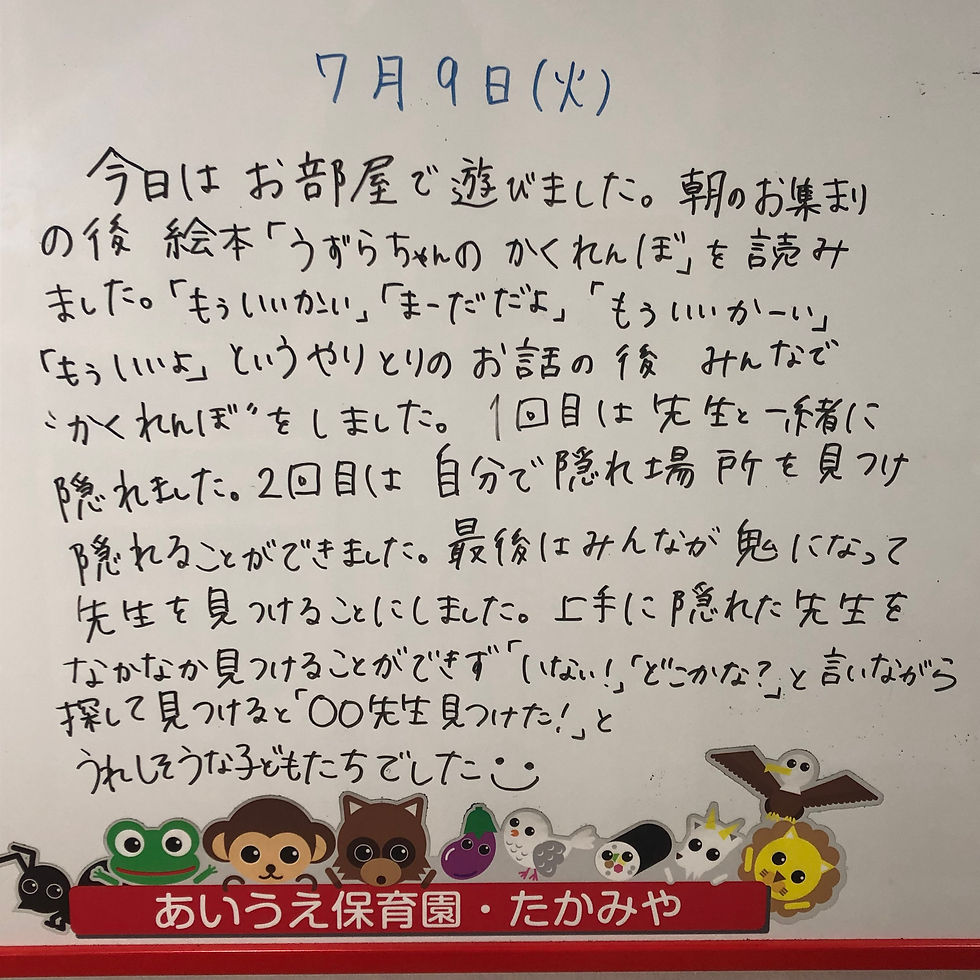 7月9日(火)
今日は お部屋で遊びました。朝のお集まり
の後 絵本「うずらちゃんの かくれんぼ」を読み
ました。「もういいかーい」「まーだだよ」「もういいかーい」
「もういいよ」というやりとりの お話の後 みんなで
“かくれんぼ”をしました。1回目は先生と一緒に
隠れました。2回目は 自分で隠れ場所を見つけ
隠れることができました。最後はみんなが鬼になって
先生を見つけることにしました。上手に隠れた先生を
なかなか見つけることができず「いない!」「どこかな?」と言いながら
探して見つけると「〇〇先生見つけた!」と
うれしそうな子どもたちでした
あいうえ保育園・たかみや